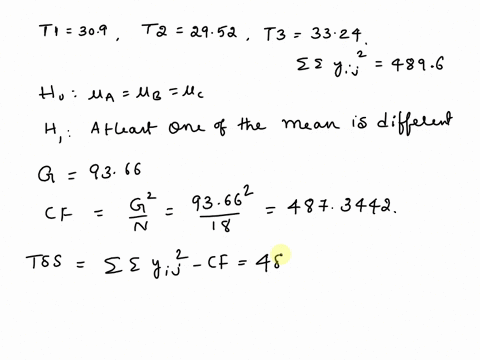 T1 = 30.9, T2 = 29.52, T3 = 33.24.
ΣΣ y_ij² = 489.6
H₀: μ_A = μ_B = μ_C
H₁: Atleast one of the mean is different
G = 93.66
CF = G²/N = 93.66²/18 = 487.3442.
TSS = ΣΣ y_ij² - CF = 48